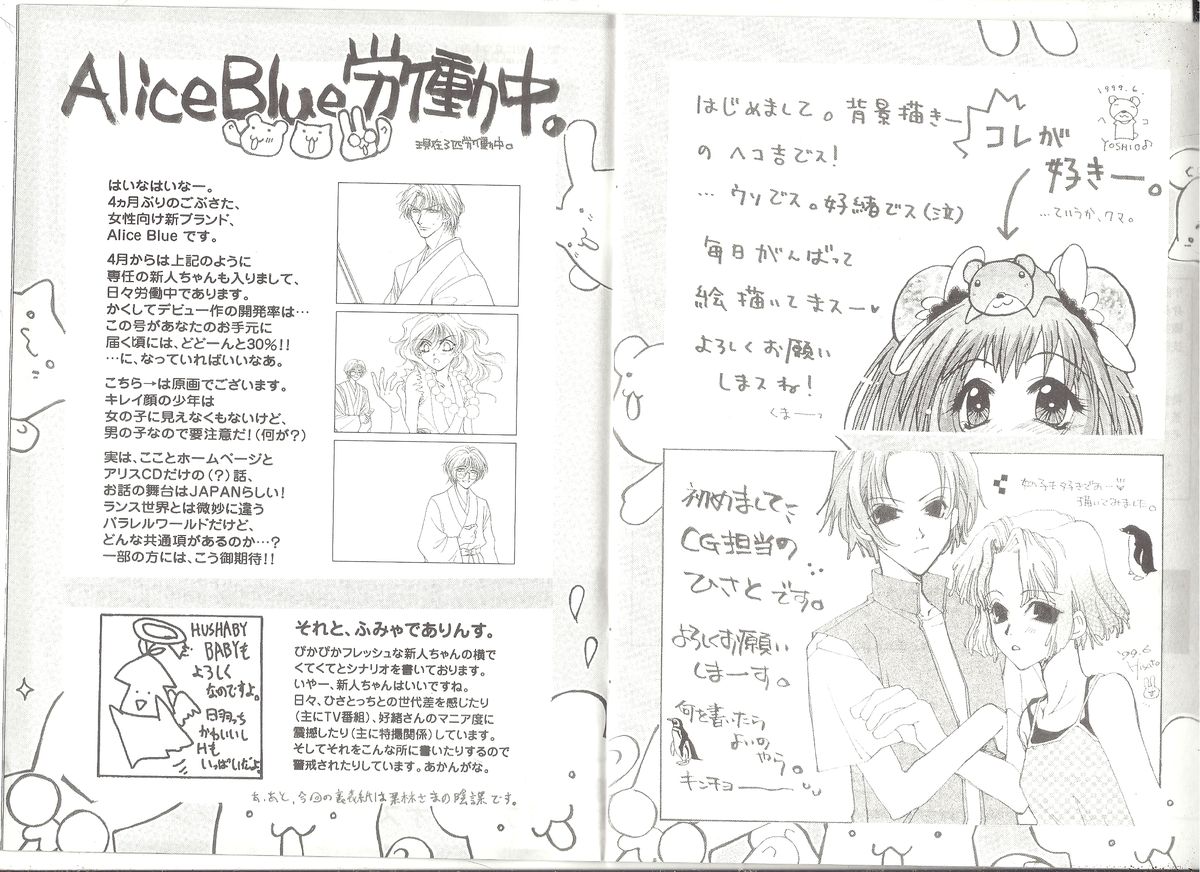 AliceBlue労働中。
現在3匹労働中。
はいなはいなー。
4ヵ月ぶりのごぶさた、
女性向け新ブランド、
Alice Blue です。
4月からは上記のように
専任の新人ちゃんも入りまして、
日々労働中であります。
かくしてデビュー作の開発率は…
この号があなたのお手元に
届く頃には、どどーんと30%!!
…に、なっていればいいなあ。
こちら→は原画でございます。
キレイ顔の少年は
女の子に見えなくもないけど、
男の子なので要注意だ!(何が?)
実は、こことホームページと
アリスCDだけの(?)話、
お話の舞台はJAPANらしい!
ランス世界とは微妙に違う
パラレルワールドだけど、
どんな共通項があるのか…?
一部の方には、こう御期待!!
HUSHABY
BABYも
よろしく
なのですよ。
かわいいし
Hも
いっぱいだよ
それと、ふみゃでありんす。
ぴかぴかフレッシュな新人ちゃんの横で
くてくてとシナリオを書いております。
いやー、新人ちゃんはいいですね。
日々、ひさとっちとの世代差を感じたり
(主にTV番組)、好緒さんのマニア度に
震撼したり(主に特撮関係)しています。
そしてそれをこんな所に書いたりするので
警戒されたりしています。あかんがな。
あ、あと、今回の裏表紙は栗林さまの陰謀です。
はじめまして。背景描きー
の ヘコ吉でス!
… ウソでス。好緒でス(泣)
毎日がんばって
絵描いてまスー♥
よろしくお願い
しまスね!
くまーっ
コレが
好きー。
…ていうか、クマ。
1999.6.
ヘコ
YOSHIO♪
初めまして、
CG担当の
ひさとです。
よろしくお願い
しまーす。
何を書いたら
よいのやら。
キンチョー
描いてみました。
'99.6
Hisato